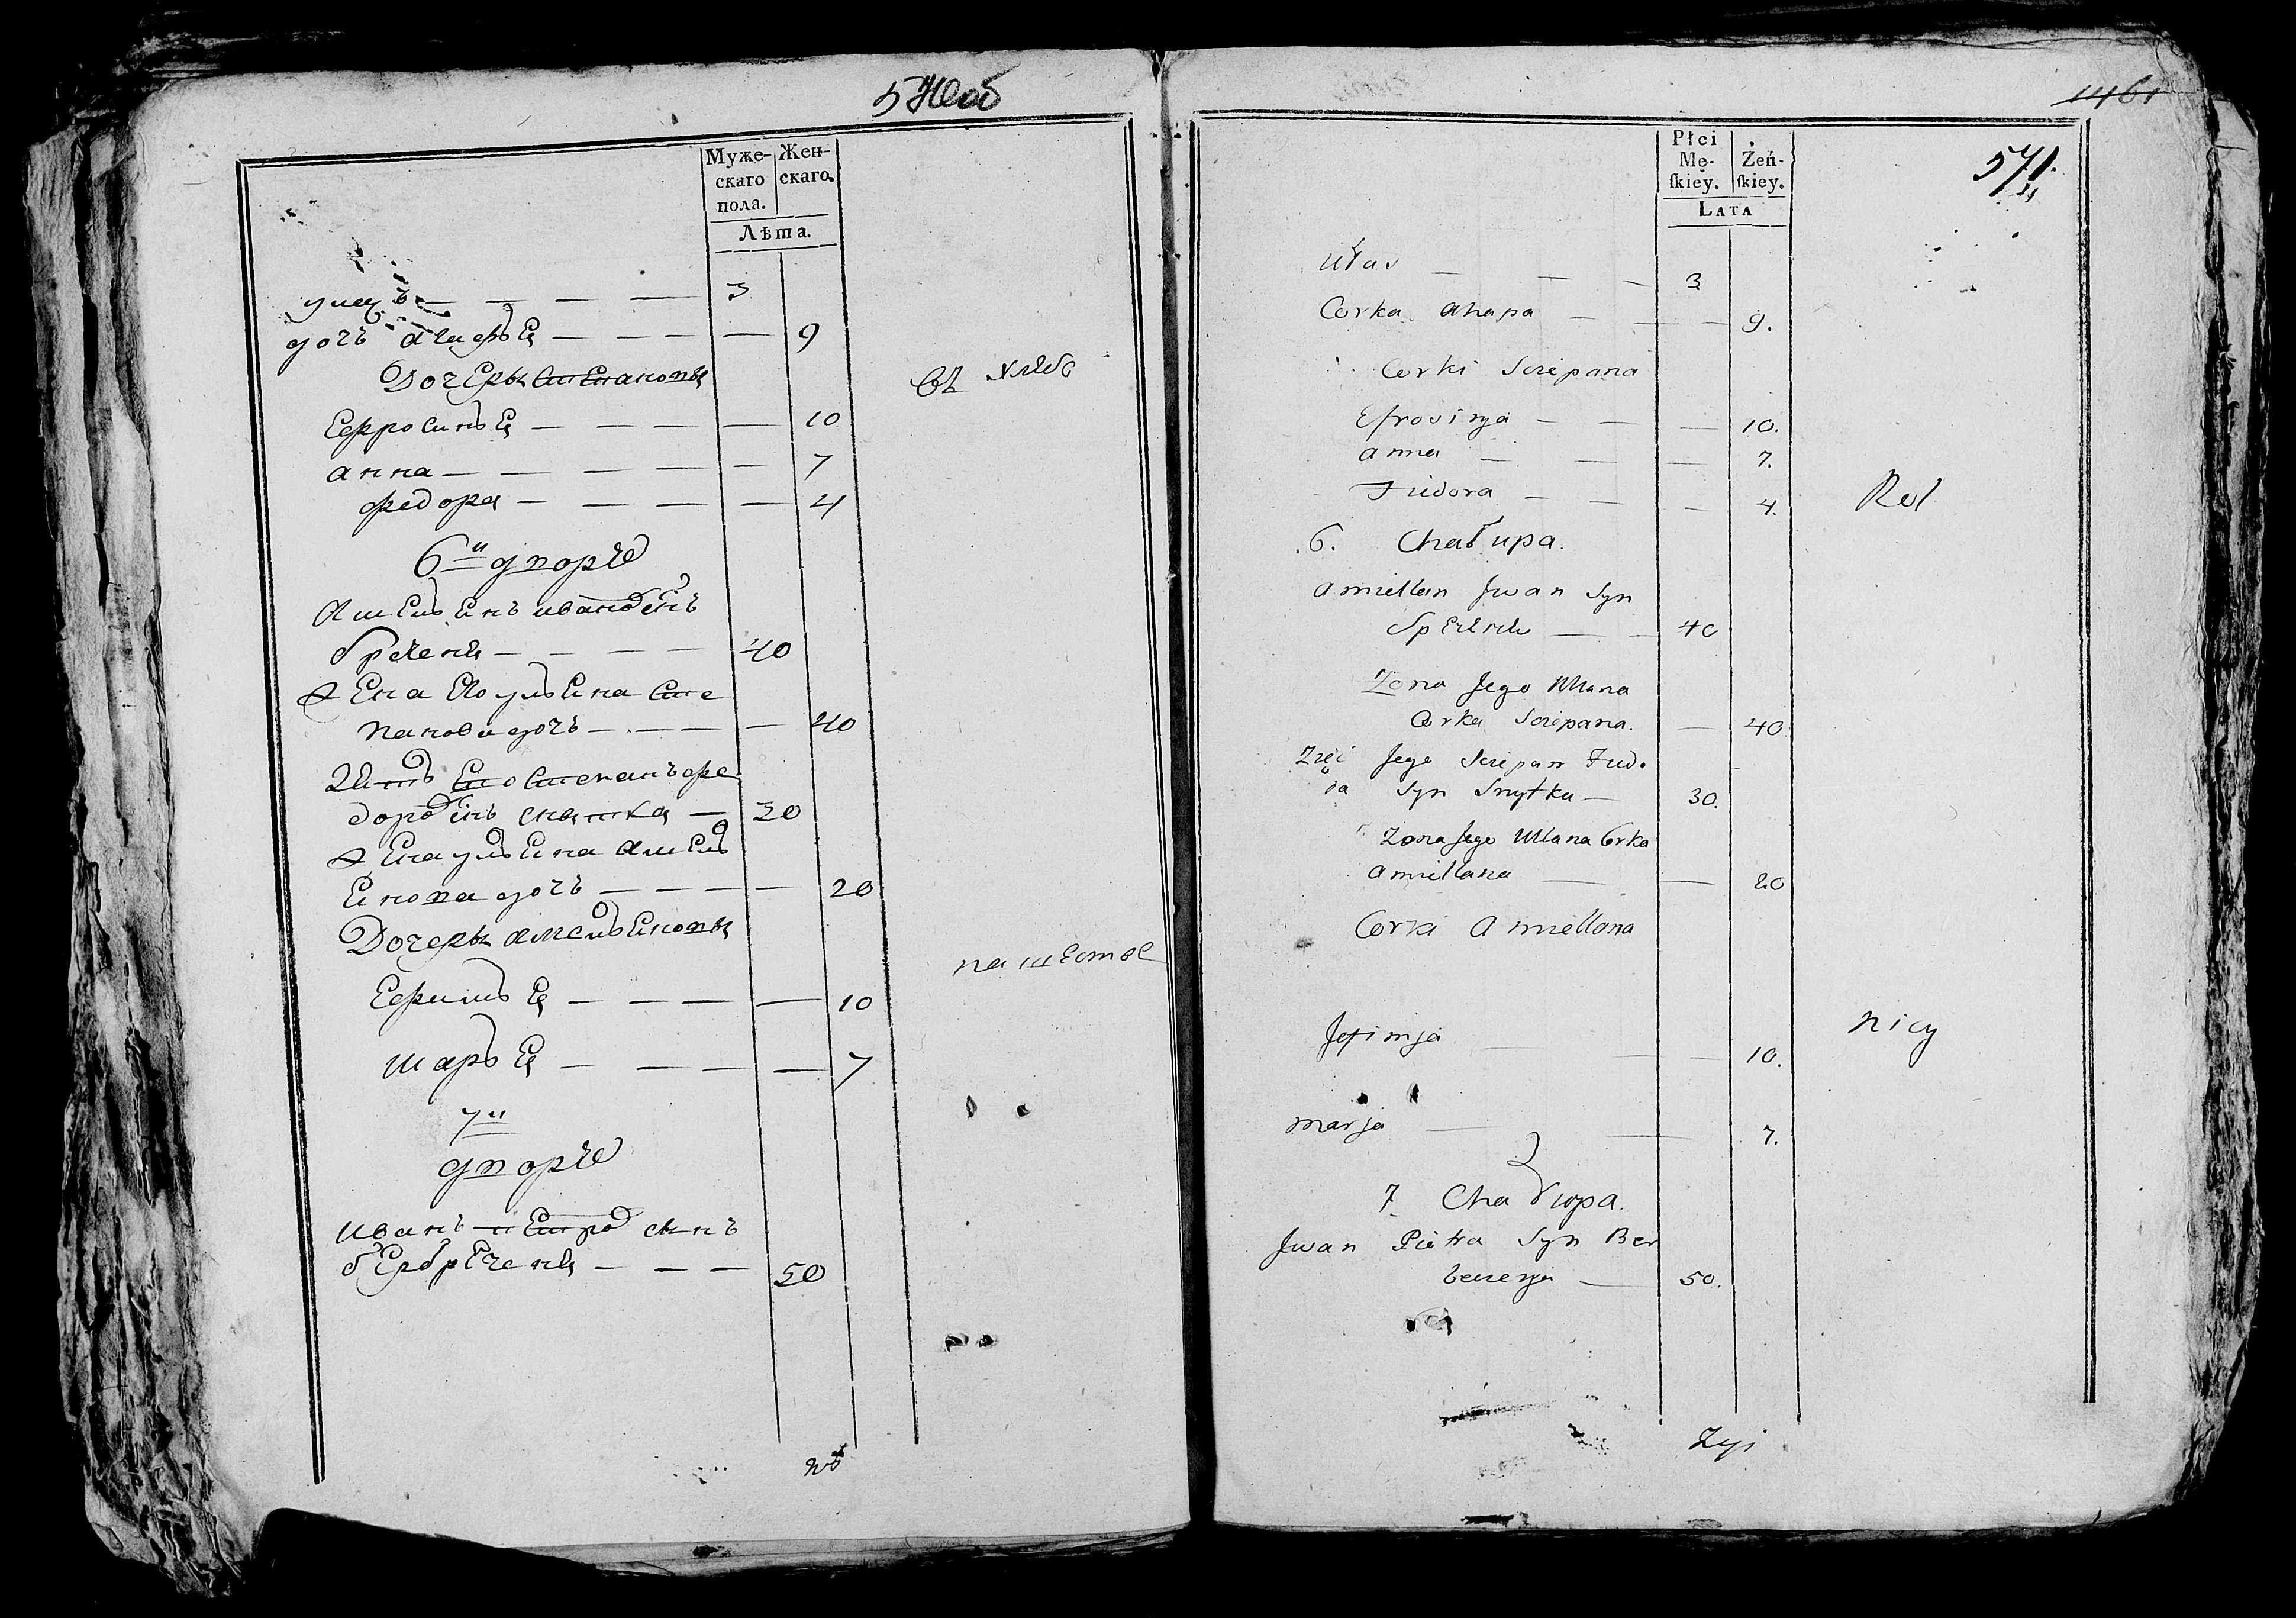 Муже-
скаго
пола.
Жен-
скаго.
Лѣта.
3
дочъ агафья — — — — 9
Дочеры Степановы
Ефросинья — — — — 10
анна — — — — — 7
федора — — — — — 4
6й дворъ
Амельянъ ивановъ сынъ
40
жена Его ульяна Сте
панова дочъ — — — — 40
Зять Его Степанъ фе
доровъ сынъ снытка — 30
жена ульяна Амель
янова дочъ — — — — 20
Дочеры амельяновы
Ефимья — — — — 10
марья — — — — — 7
7й
дворъ
иванъ петровъ сынъ
берберченя — — — 50
1461
571.
Płci
Mę-
ſkiey.
Żeń-
ſkiey.
LATA
Ułas — — — 3
Corka ahapa — — — 9.
Corki Sciepana
Efrosinja — — — 10.
anna — — — 7.
Fiedora — — — 4.
6. Chałupa.
amiellan Jwan Syn
40
Zona Jego Ullana
Corka Sciepana. — 40
Zięć Jego Sciepan Fiedo
ra Syn Snytka — 30.
Zona Jego Ullana Corka
amiellana — — 20
Corki Amiellana
Jefimja — — — 10.
nicy
marja — — 7.
7. Chałupa.
Jwan Pietra Syn Ber
50.